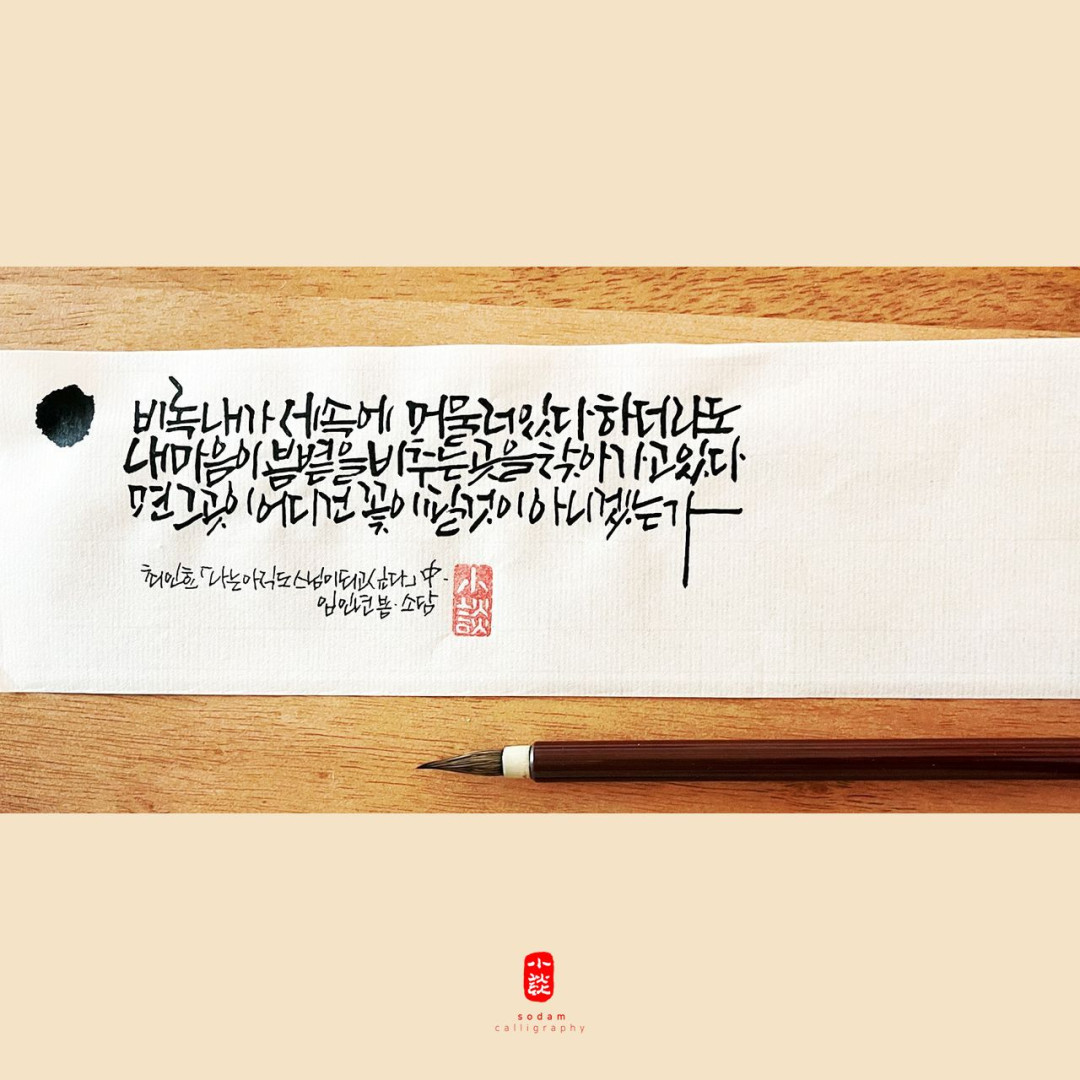 비록 내가 세속에 머물러있다 하더라도
내 마음이 봄볕을 비추는 곳을 찾아가고 있다
면 그곳이 어디건 꽃이 필 것이 아니겠는가
최인호 「나는 아직도 스님이 되고 싶다」 中.
임인년 봄. 소담
小談
小談
sodam
calligraphy